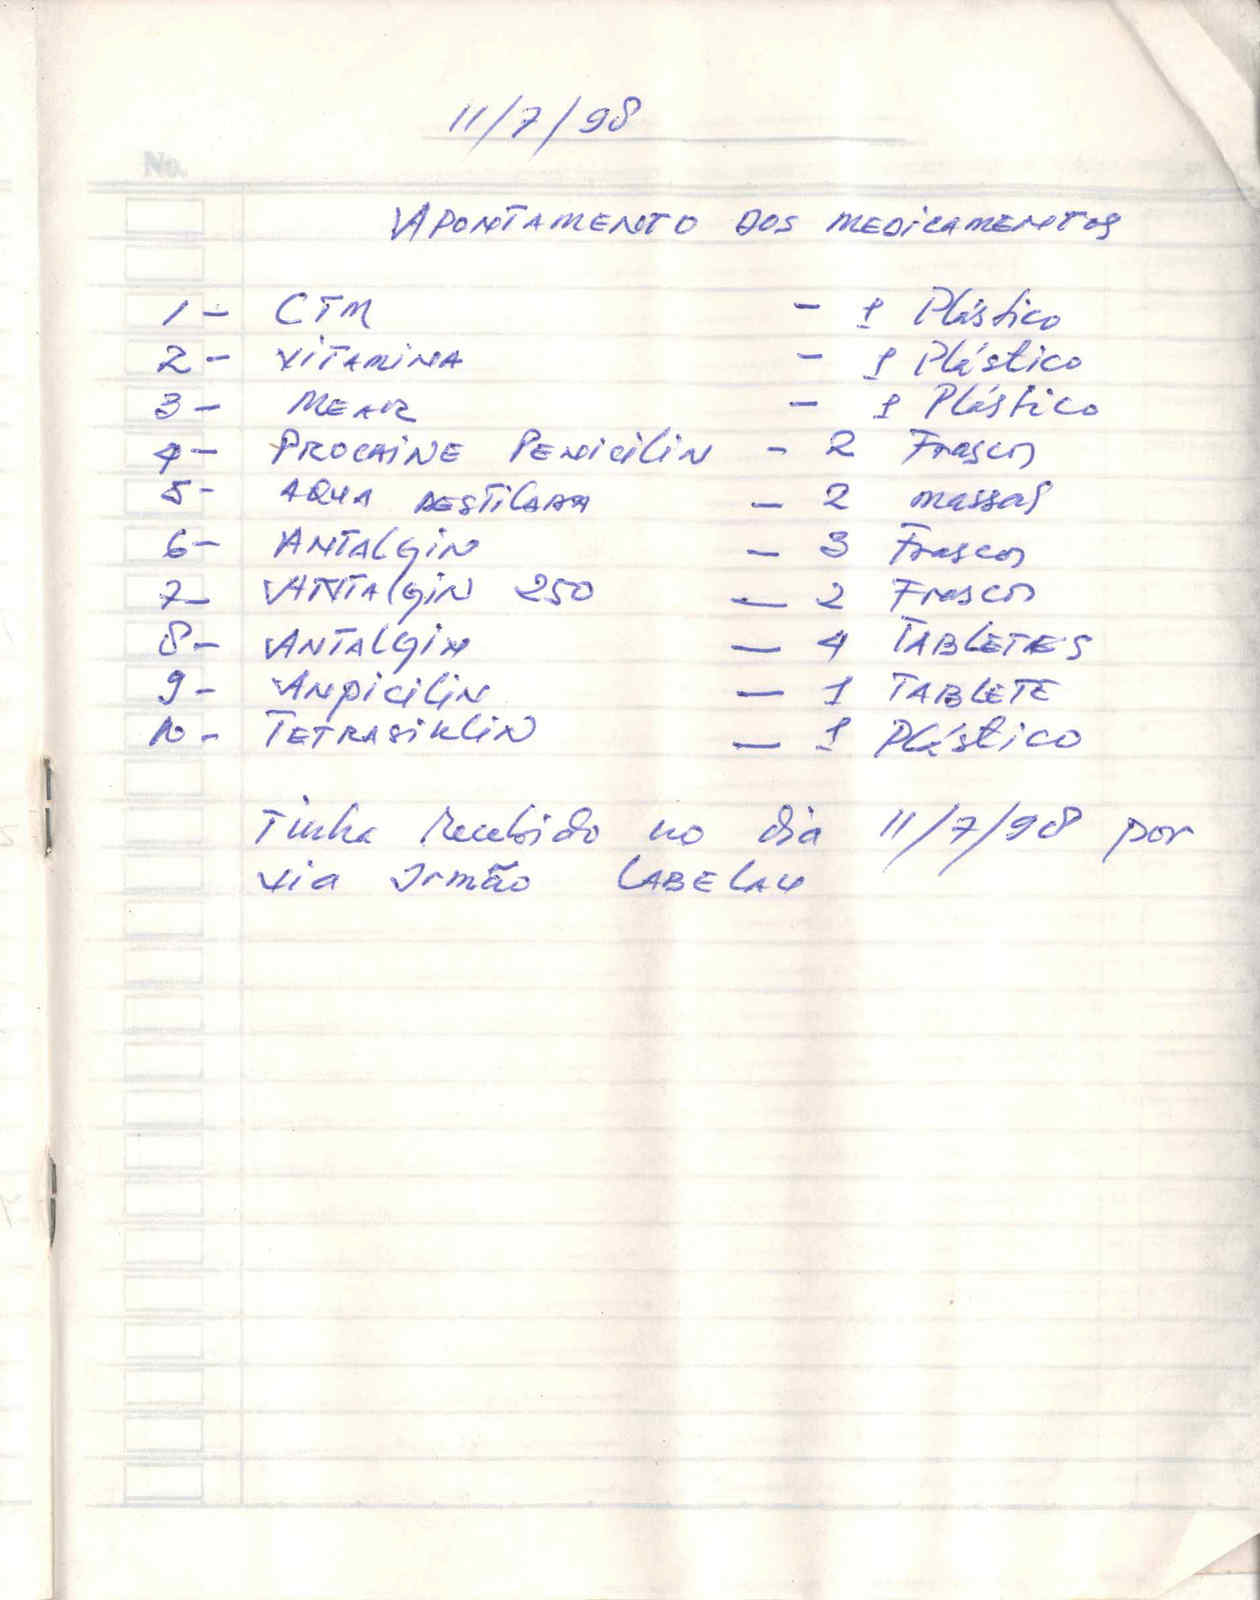 11/7/98
No.
APONTAMENTO DOS MEDICAMENTOS
1- CTM - 1 Plástico
2- VITAMINA - 1 Plástico
3- - 1 Plástico
4- PROCAINE PENICILIN - 2 Frascos
5- AQUA DESTILADA - 2 massas
6- ANTALGIN - 3 Frascos
7- ANTALGIN 250 - 2 Frascos
8- ANTALGIN - 4 TABLETES
9- ANPICILIN - 1 TABLETE
10- TETRASIKLIN - 1 Plástico
Tinha recebido no dia 11/7/98 por
via Irmão